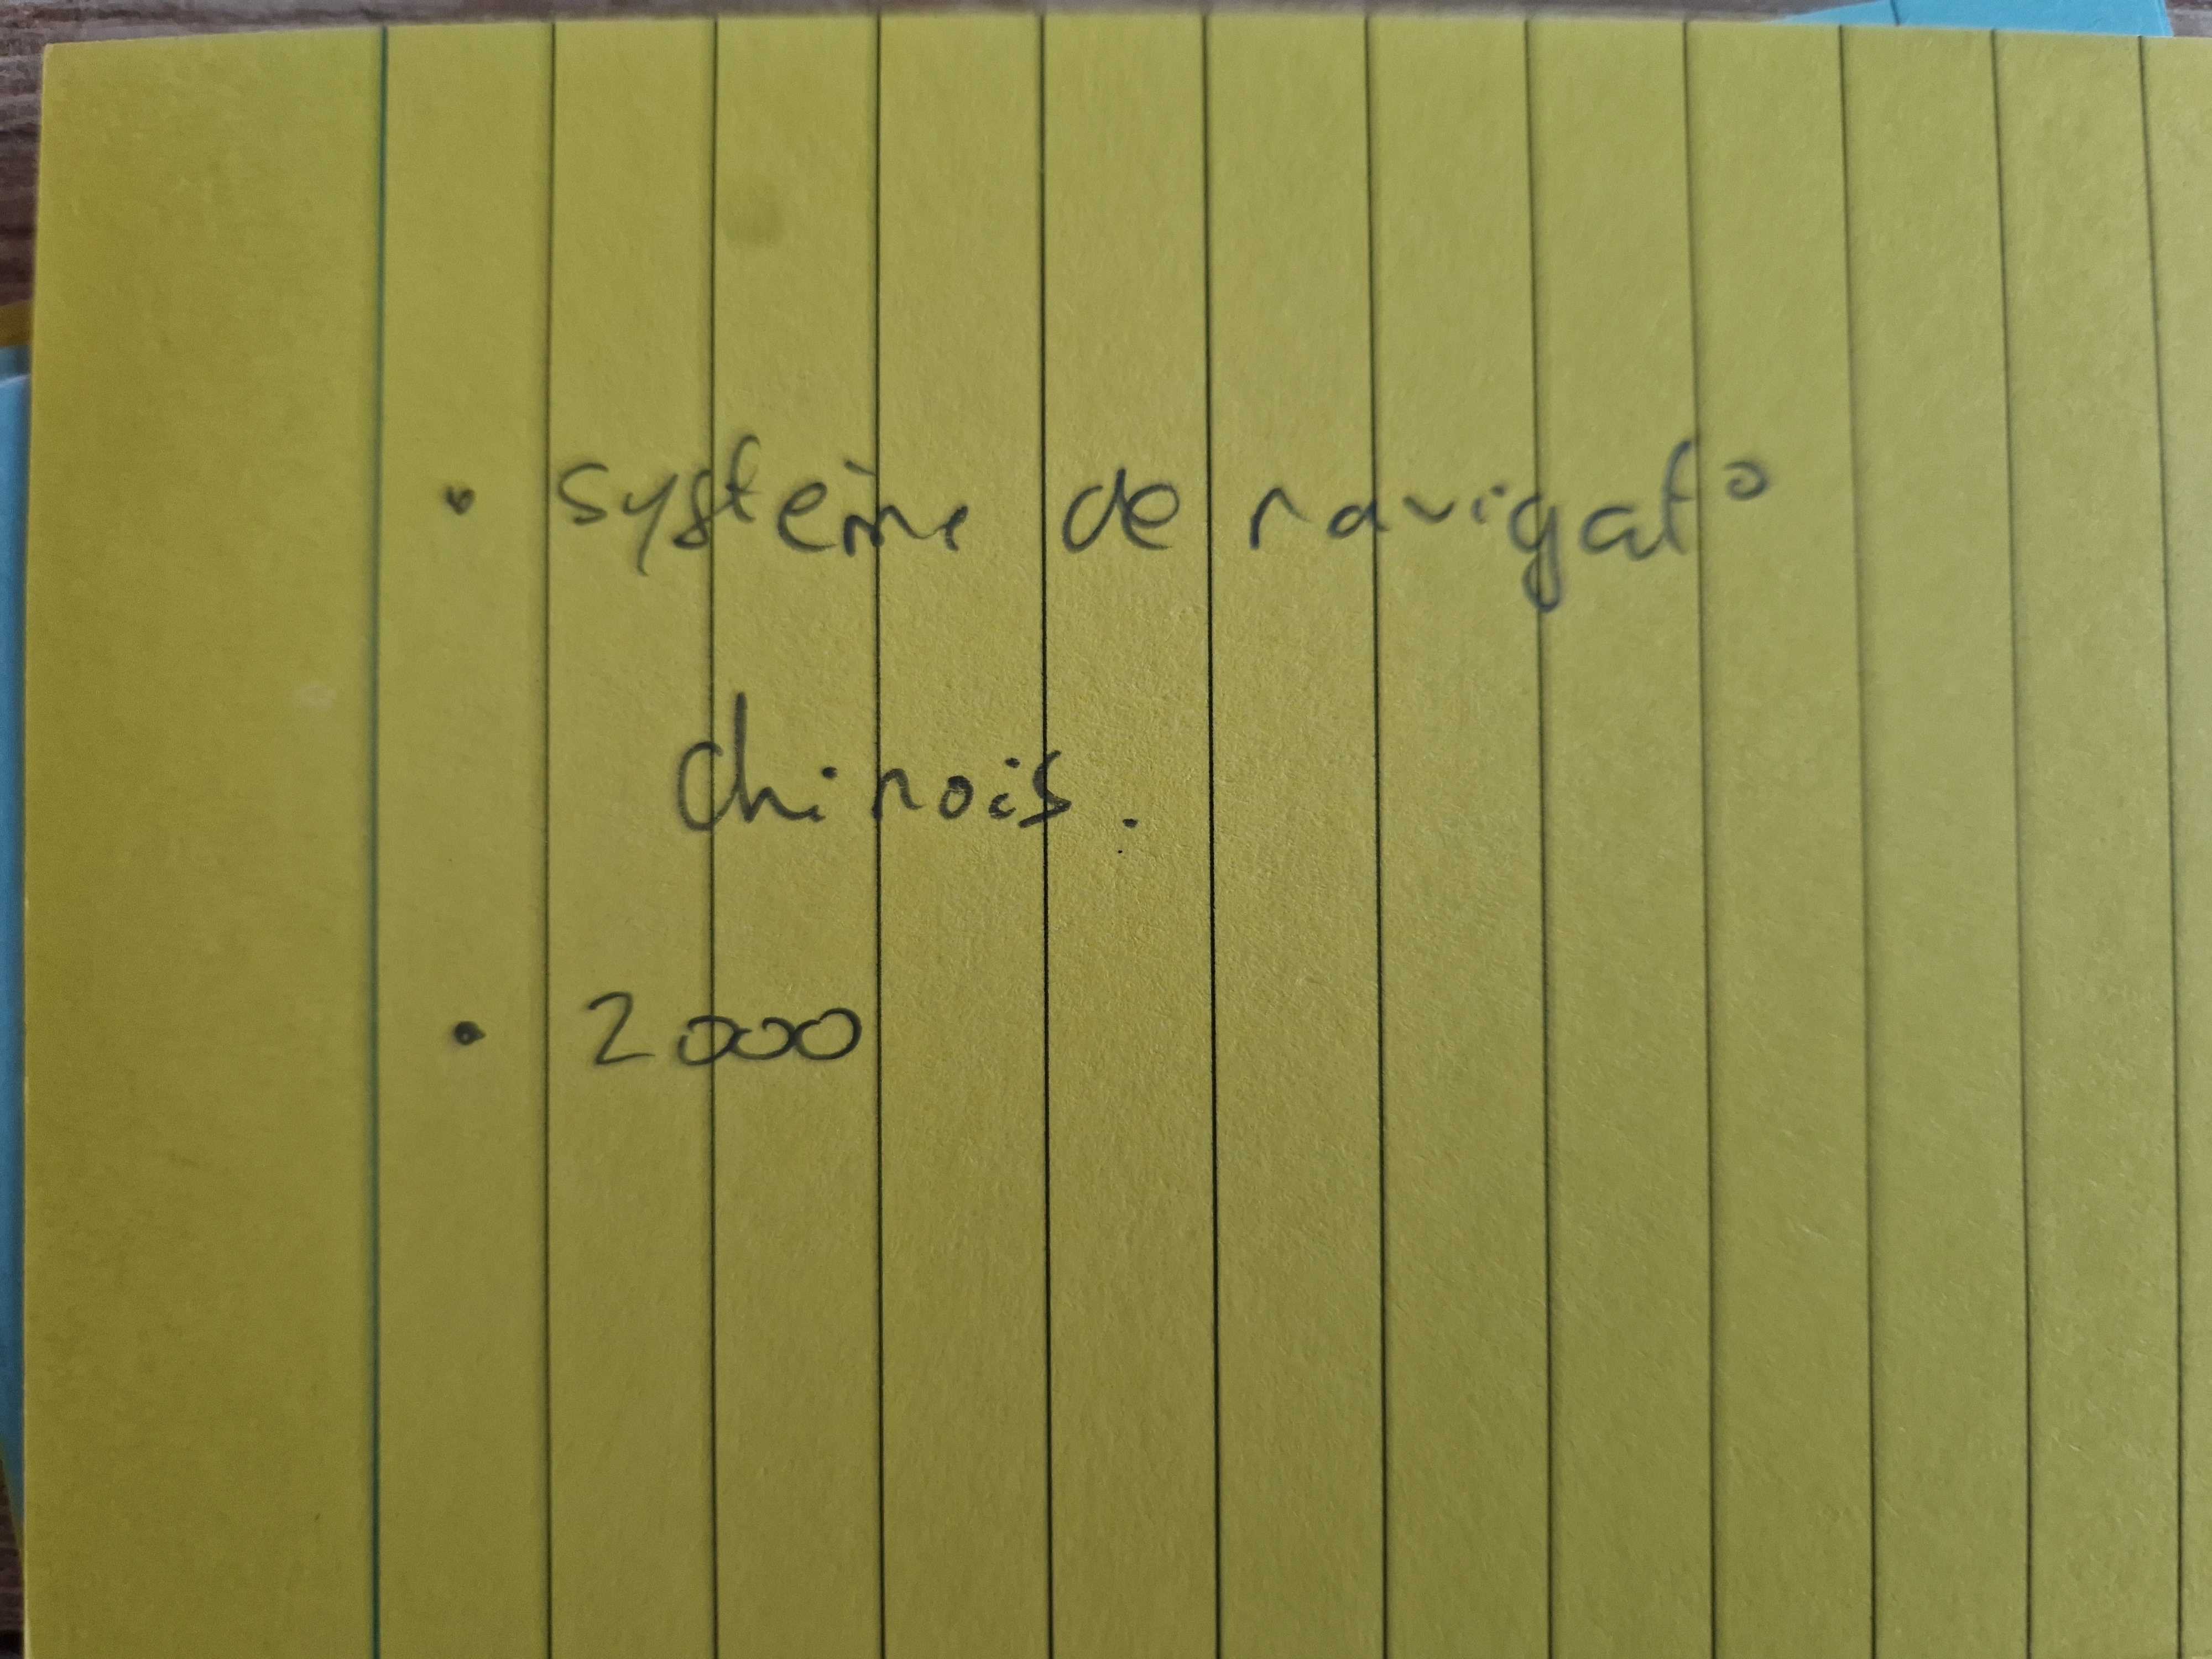 • système de navigat°
chinois.
• 2000